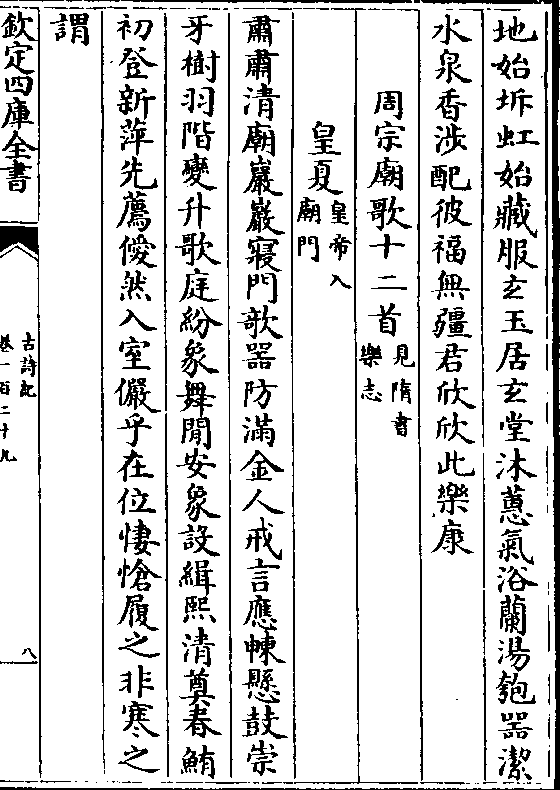 地始坼虹始藏服玄玉居玄堂沐蕙氣浴蘭湯匏器潔
水泉香渉配彼福無疆君欣欣此樂康
周宗廟歌十二首見隋書樂志
皇夏皇帝入廟門
肅肅清廟巖巖寢門歌器防滿金人戒言應朄懸鼓崇
牙樹羽階變升歌庭紛象舞閒安象設緝熙清奠春鮪
初登新萍先薦僾然入室儼乎在位悽愴履之非寒之
謂
欽定四庫全書
古詩紀
卷一百二十九
八